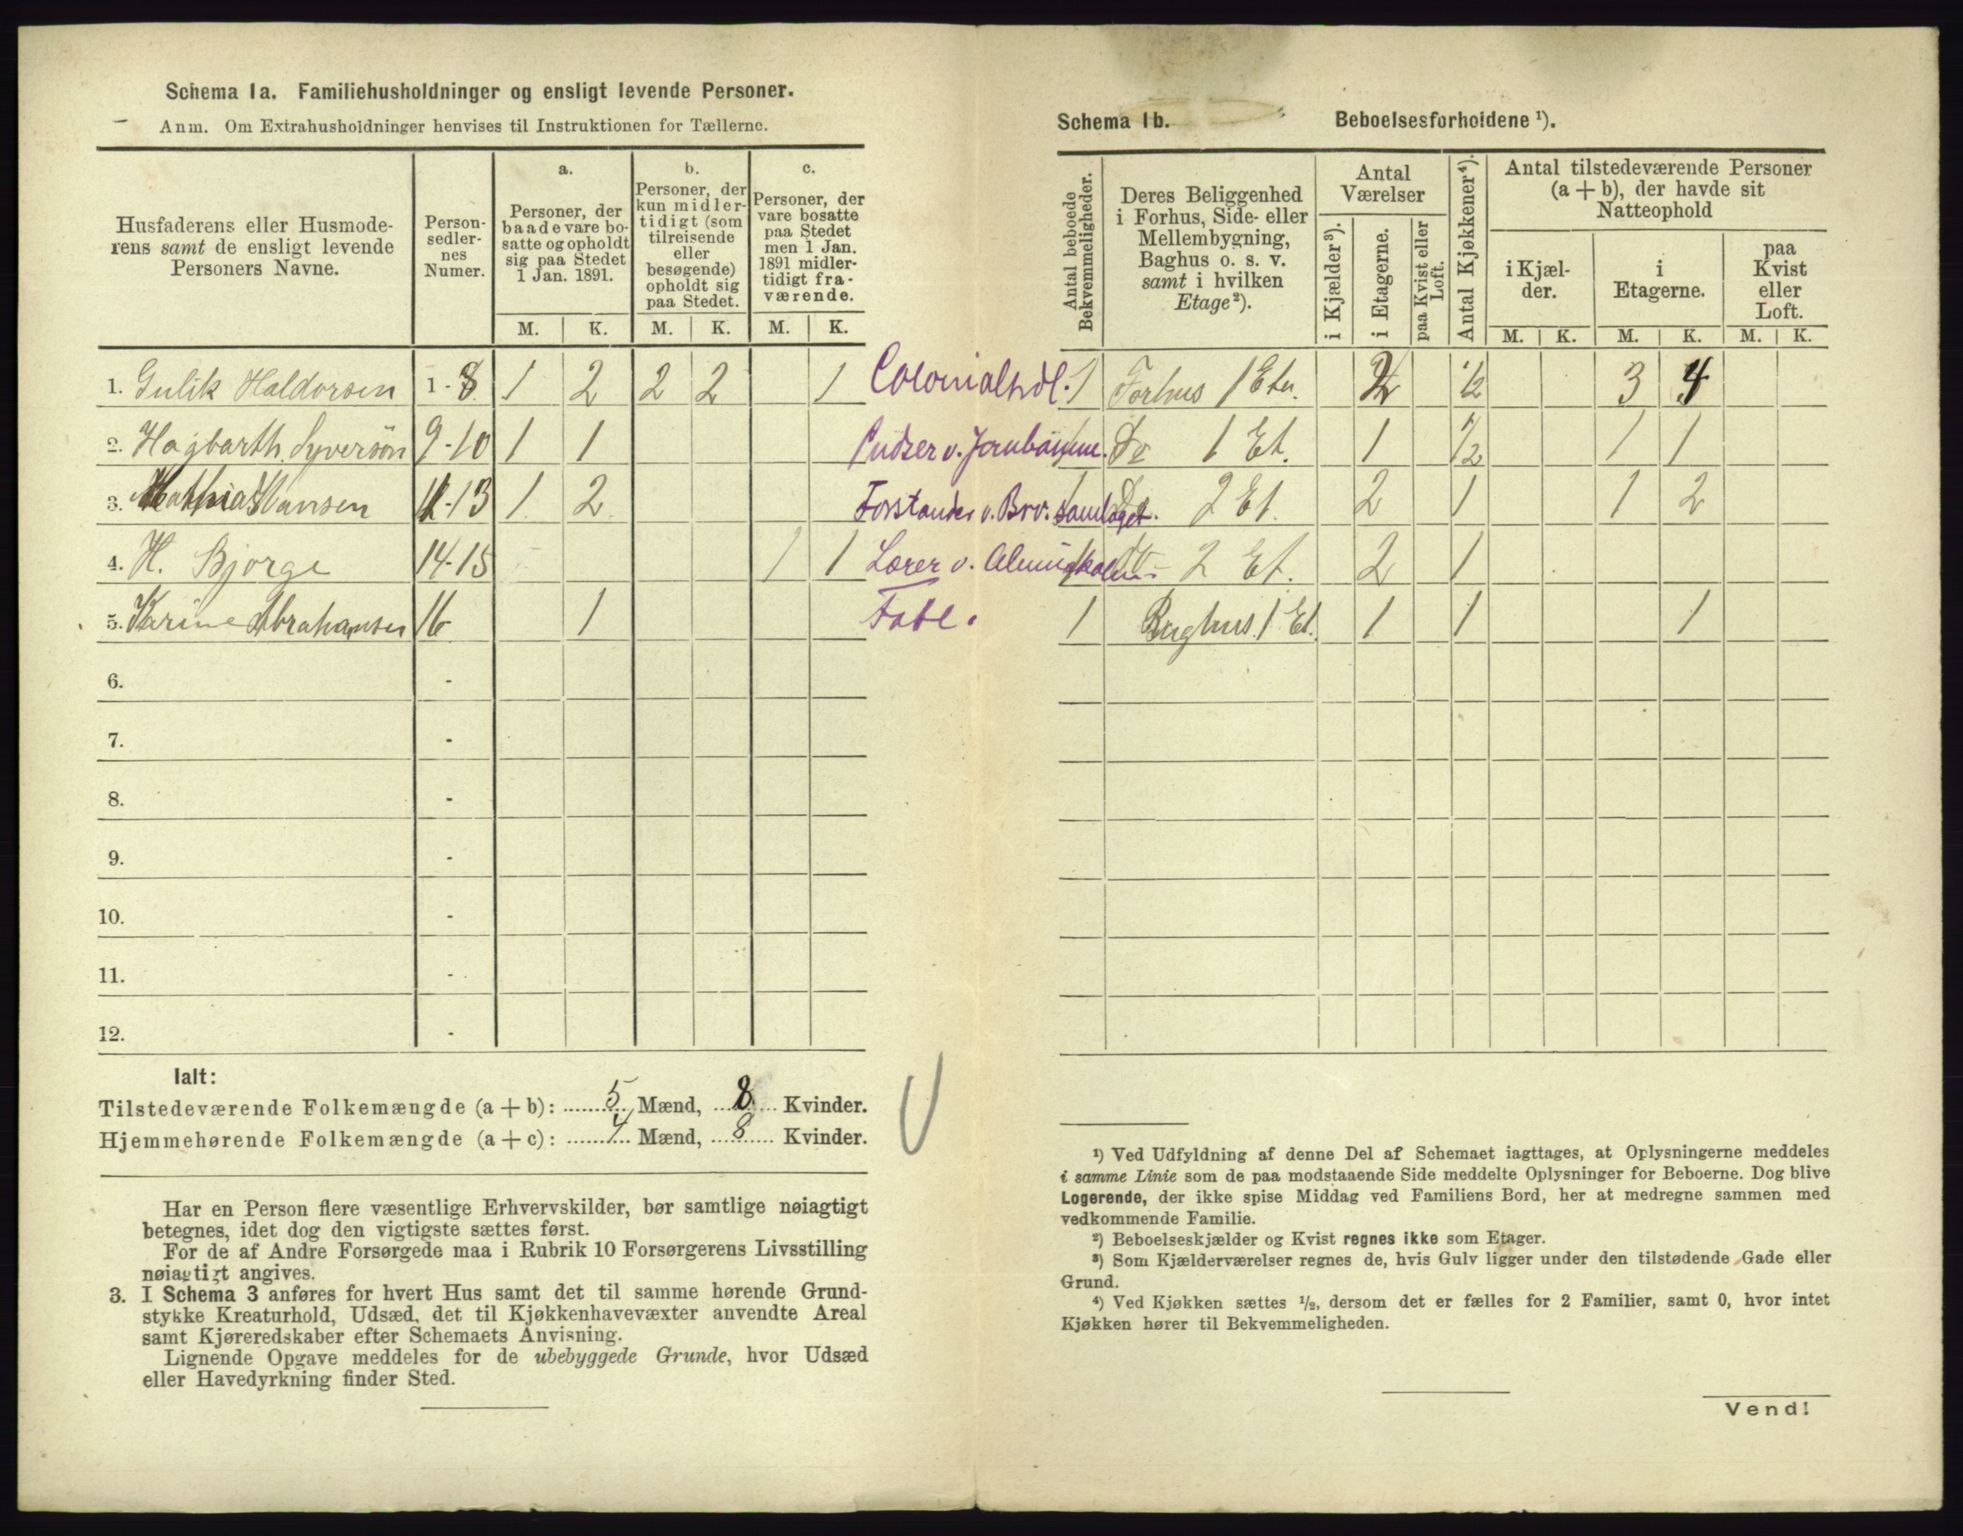 Schema 1a. Familiehusholdninger og ensligt levende Personer.
Anm. Om Extrahusholdninger henvises til Instruktionen for Tællerne.
Husfaderens eller Husmode-
rens samt de ensligt levende
Personers Navne.
Person-
sedler-
nes
Numer.
a.
Personer, der
baade vare bo-
satte og opholdt
sig paa Stedet
1 Jan. 1891.
b.
Personer, der
kun midler-
tidigt (som
tilreisende
eller
besøgende)
opholdt sig
paa Stedet.
c.
Personer, der
vare bosatte
paa Stedet
men 1 Jan.
1891 midler-
tidigt fra-
værende.
M. K. M. K. M. K.
1. Gulik Haldorsen 1-8 1 2 2 2 1 Colonialhdl.
2. Hagbarth Syversøn 9-10 1 1 Pudser v. Jernbanne.
3. Mathias Hansen 11-13 1 2 Forstander v. Brv. Samlaget.
4. H. Bjorge 14-15 1 1 Lærer v.
5. Karine Abrahamsen 16 1 Fabr.
6. -
7. -
8. -
9. -
10. -
11. -
12. -
Ialt:
Tilstedeværende Folkemængde (a+b): 5 Mænd, 8 Kvinder.
Hjemmehørende Folkemængde (a+c): 4 Mænd, 8 Kvinder.
Har en Person flere væsentlige Erhvervskilder, bør samtlige nøiagtigt
betegnes, idet dog den vigtigste sættes først.
For de af Andre Forsørgede maa i Rubrik 10 Forsørgerens Livsstilling
nøiagtigt angives.
3. I Schema 3 anføres for hvert Hus samt det til samme hørende Grund-
stykke Kreaturhold, Udsæd, det til Kjøkkenhavevæxter anvendte Areal
samt Kjøreredskaber efter Schemaets Anvisning.
Lignende Opgave meddeles for de ubebyggede Grunde, hvor Udsæd
eller Havedyrkning finder Sted.
Schema 1b. Beboelsesforholdene ¹).
Antal beboede
Bekvemmeligheder.
Deres Beliggenhed
i Forhus, Side- eller
Mellembygning,
Baghus o. s. v.
samt i hvilken
Etage²).
Antal
Værelser
i Kjælder³).
i Etagerne.
paa Kvist eller
Loft.
Antal Kjøkkener⁴).
Antal tilstedeværende Personer
(a+b), der havde sit
Natteophold
i Kjæl-
der.
i
Etagerne.
paa
Kvist
eller
Loft.
M. K. M. K. M. K.
1 Forhus 1 Etg. 2 1/2 3 4
1 Do 1 Et. 1 1/2 1 1
1 Do 2 Et. 2 1 1 2
1 Do 2 Et. 2 1
1 Baghus 1 Et. 1 1 1
¹) Ved Udfyldning af denne Del af Schemaet iagttages, at Oplysningerne meddeles
i samme Linie som de paa modstaaende Side meddelte Oplysninger for Beboerne. Dog blive
Logerende, der ikke spise Middag ved Familiens Bord, her at medregne sammen med
vedkommende Familie.
²) Beboelseskjælder og Kvist regnes ikke som Etager.
³) Som Kjælderværelser regnes de, hvis Gulv ligger under den tilstødende Gade eller
Grund.
⁴) Ved Kjøkken sættes ½, dersom det er fælles for 2 Familier, samt 0, hvor intet
Kjøkken hører til Bekvemmeligheden.
Vend!